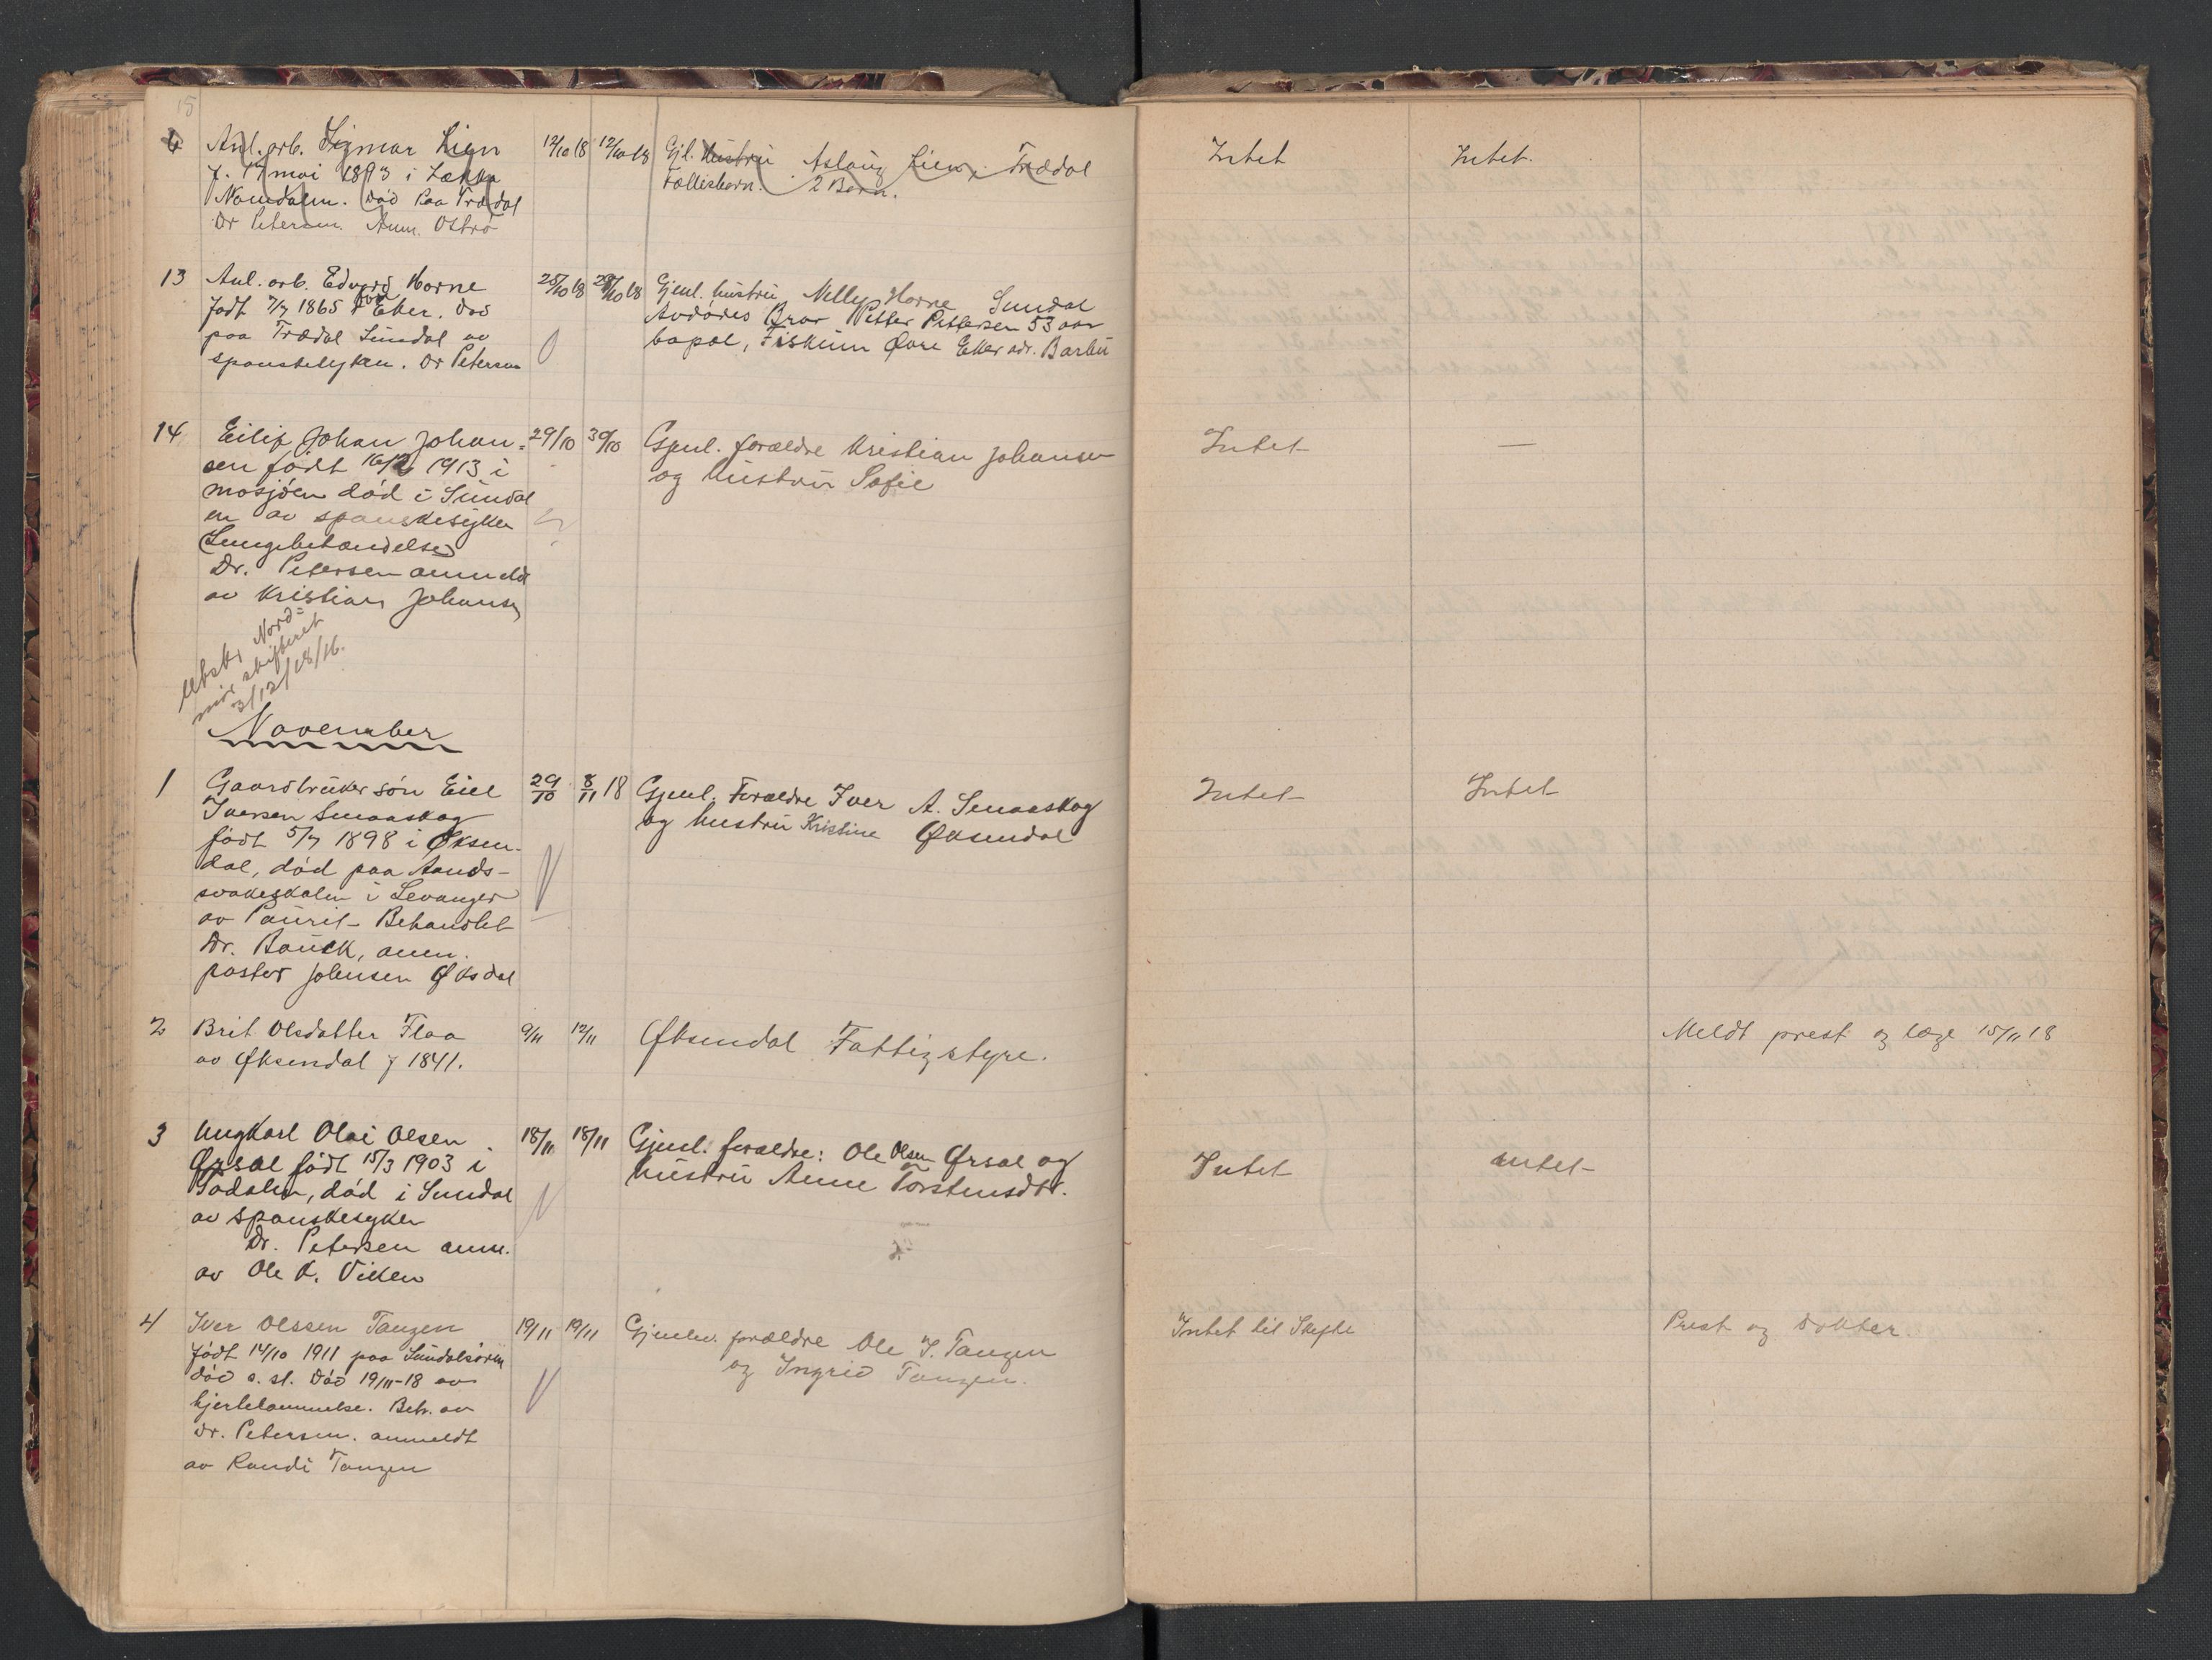 15
Anl. arb. Sigmar Lien 12/10 18 12/10 18 Gjl. Hustru Aslaug Lien, Trædal Intet Intet.
f. 17 mai 1893 i
Fællesbarn. 2 Barn.
Namdalen. Død paa Trædal
Dr Petersen. Anm. Østrø
13 Anl. arb. Edvard Horne 25/10 18 28/10 18 Gjenl. hustru Nelly Horne Sundal
Født 7/7 1865 Eker. Død
Avdødes Bror Petter Pettersen 53 aar
paa Trædal Sundal av
bopæl, Fiskum Øvre Eker adr. Barbu
spanskesyken. Dr Petersen
14 Eilif Johan Johan= 29/10 30/10 Gjenl. forældre Kristian Johansen Intet —
sen født 16/2 1913 i
og hustru Sofie
mosjøen død i Sundal
en av spanskesyken
(Lungebetændelse)
Dr. Petersen anmeldt
av Kristian Johansen
Utskr. Nord=
mør skifteret
3/12/18/16.
November
1 Gaardbruker søn Eiel 29/10 8/11 18 Gjenl. Forældre Iver A. Smaaskog Intet Intet
Iversen Smaaskog
og hustru Kristine Øksendal
født 5/7 1898 i Øksen-
dal, død paa Aands-
svakeskolen i Levanger
av - Behandlet
Dr. Bauck, anm.
pastor Johnsen Øksdal
2 Brit Olsdatter Flaa 9/11 12/11 Øksendal Fattigstyre. Meldt prest og læge 15/11 18
av Øksendal f 1841.
3 Ungkarl Olai Olsen 18/11 18/11 Gjenl. forældre: Ole Olsen Ørsal og Intet Intet
Ørsal født 15/3 1903 i
hustru Anne Torstensdtr.
død i Sundal
av spanskesyken
Dr. Petersen anm.
av Ole O. Viken
4 Iver Olssen Tangen 19/11 19/11 Gjenlev. forældre Ole I. Tangen Intet til Skifte Prest og Dokter
født 14/10 1911 paa Sundalsøren
og Ingrid Tangen.
død s. st. Død 19/11-18 av
hjertelammelse. Beh. av
Dr. Petersen. anmeldt
av Randi Tangen